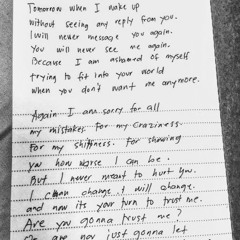 Tomorrow when I wake up
without seeing any reply from you.
I will never message you again.
You will never see me again.
Because I am ashamed of myself
trying to fit into your world
when you don't want me anymore.
Again I am sorry for all
my mistakes. For my craziness.
For my shittness. For showing
you how worse I can be.
But I never meant to hurt you.
I can change. I will change.
and now its your turn to trust me.
Are you gonna trust me?
Or are you just gonna let